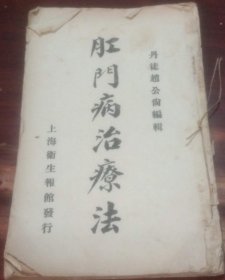 丹徒趙公尙編輯
肛門病治療法
上海衛生報館發行